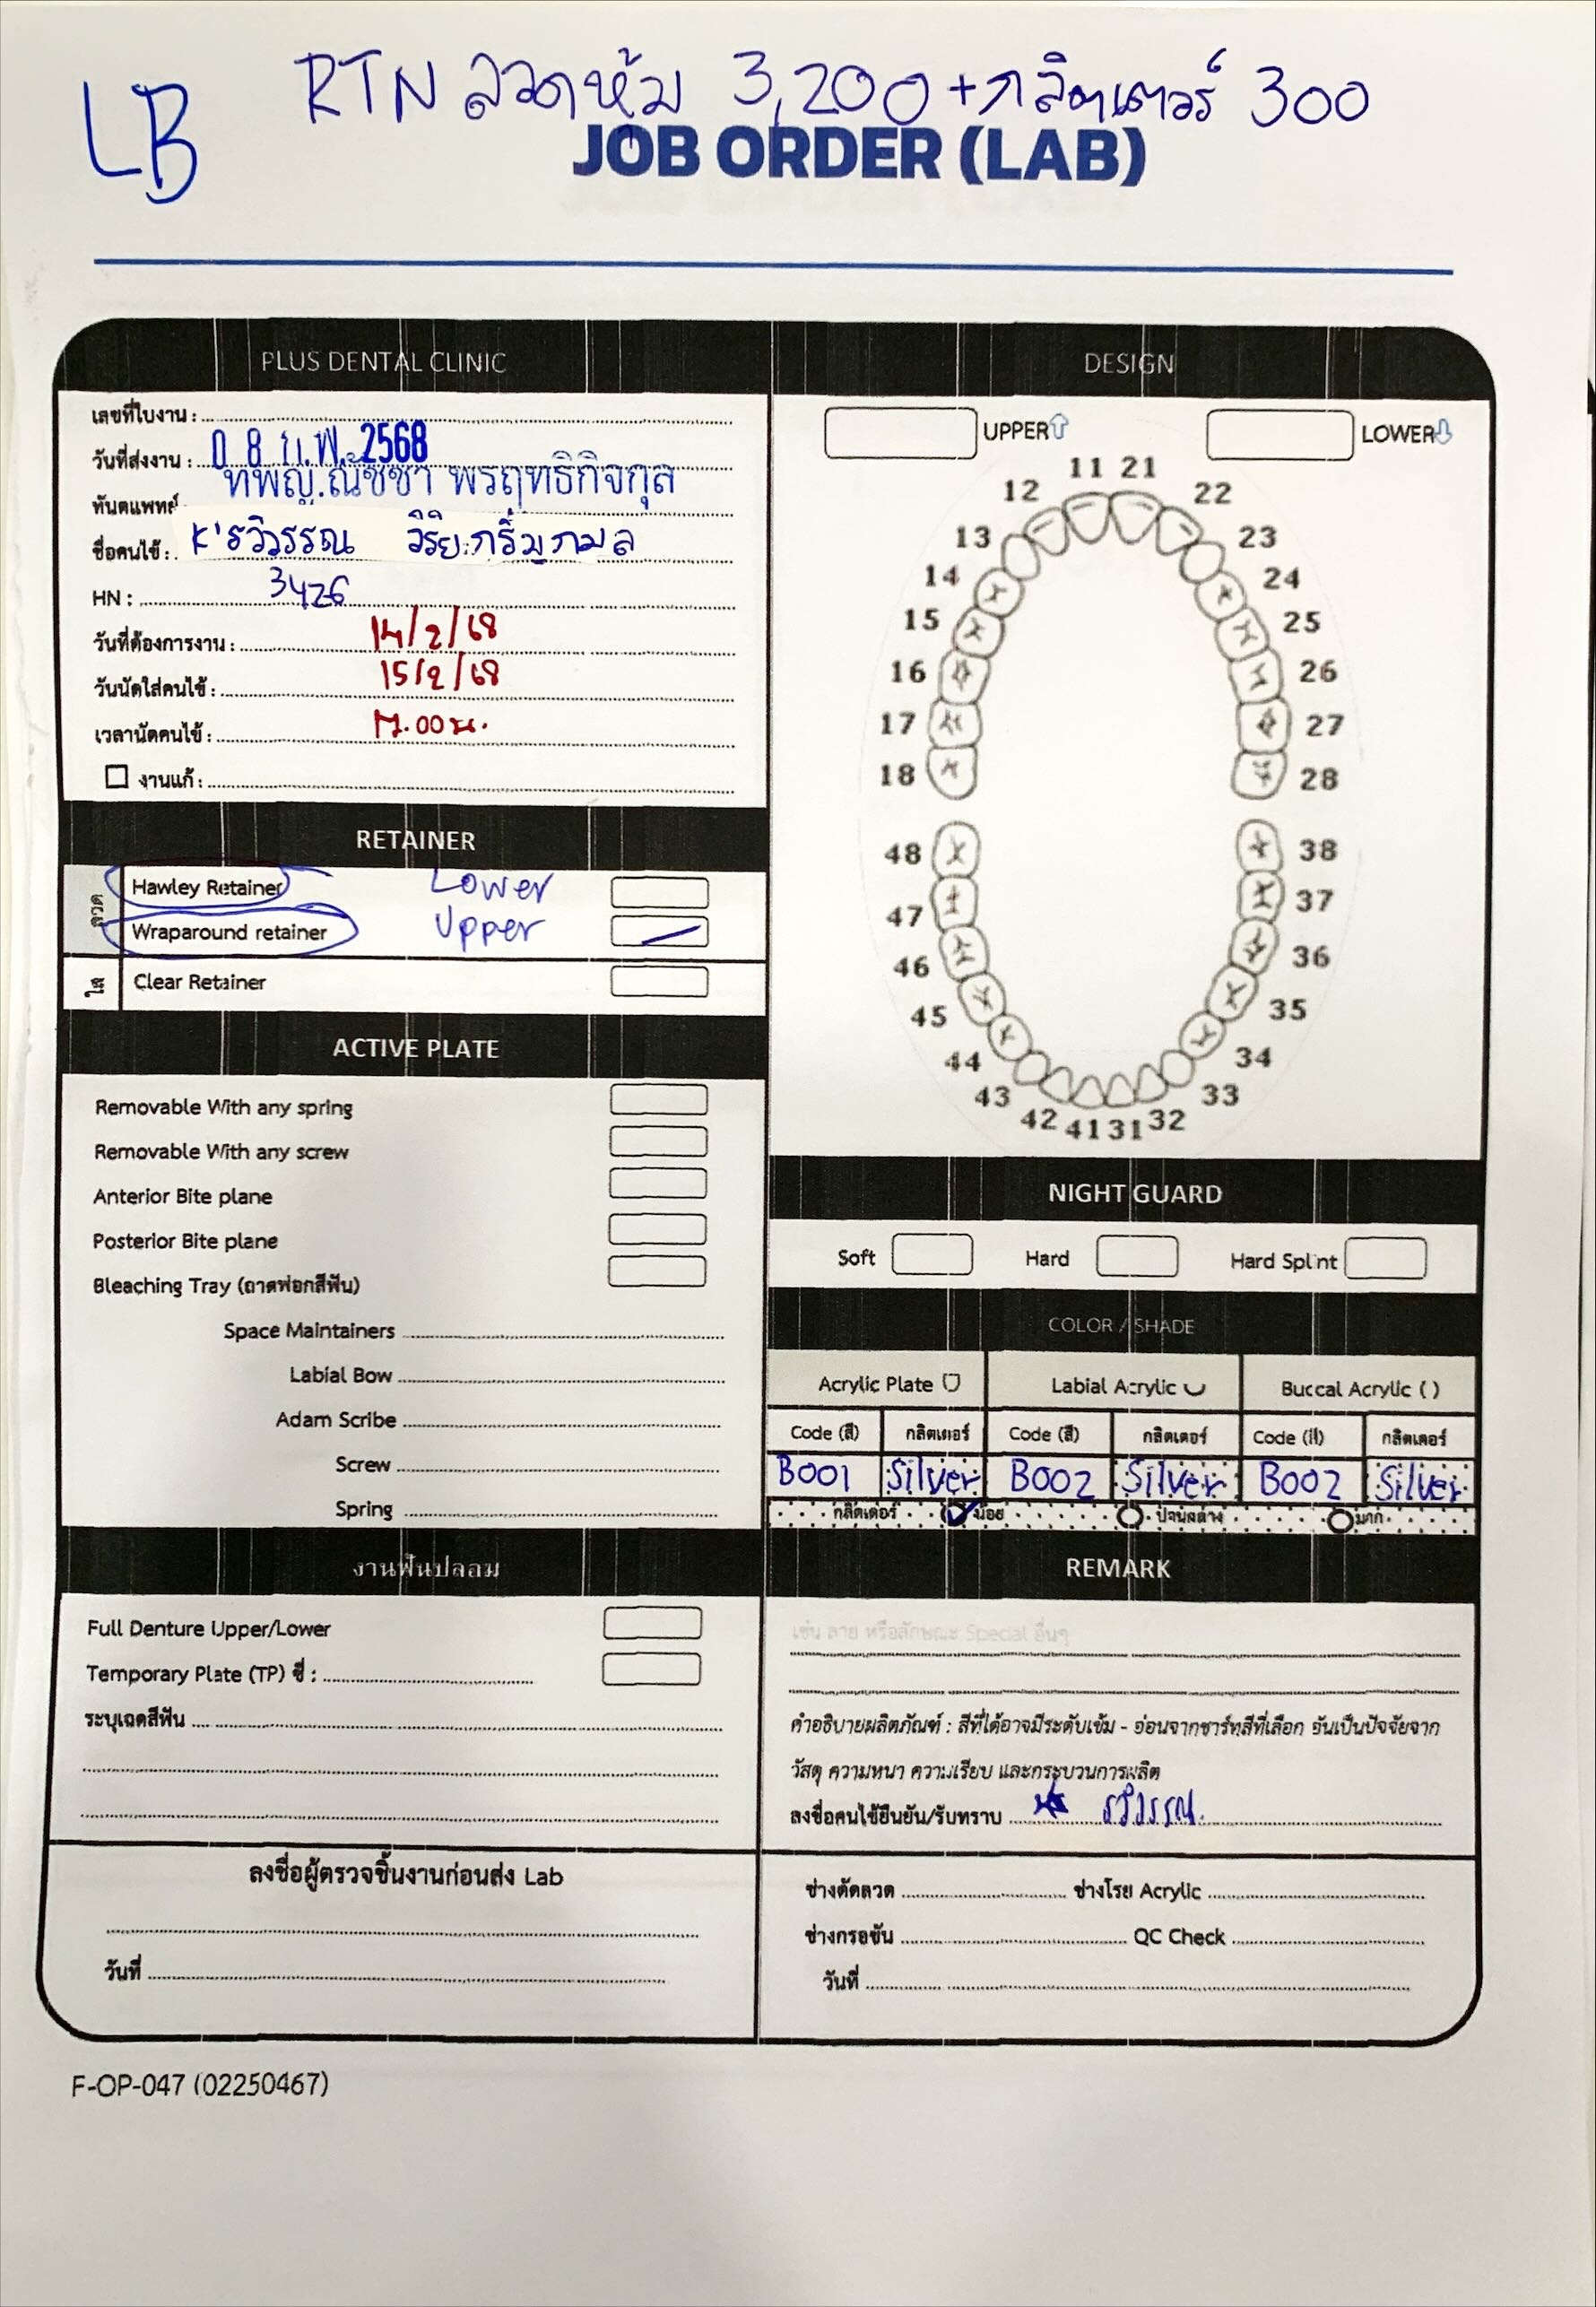 LB
RTN ลวดหุ้ม 3,200 + กลิตเตอร์ 300
JOB ORDER (LAB)
PLUS DENTAL CLINIC
เลขที่ใบงาน :
วันที่ส่งงาน : 0 8 ก.พ. 2568
ทันตแพทย์ ทพญ.ณัชชา พรฤทธิกิจกุล
ชื่อคนไข้ : K'รวิวรรณ
HN : 3426
วันที่ต้องการงาน : 14/2/68
วันนัดใส่คนไข้ : 15/2/68
เวลานัดคนไข้ : 17.00 น.
งานแก้ :
RETAINER
ลวด
Hawley Retainer Lower
Wraparound retainer Upper
ใส
Clear Retainer
ACTIVE PLATE
Removable With any spring
Removable With any screw
Anterior Bite plane
Posterior Bite plane
Bleaching Tray (ถาดฟอกสีฟัน)
Space Maintainers
Labial Bow
Adam Scribe
Screw
Spring
งานฟันปลอม
Full Denture Upper/Lower
Temporary Plate (TP) ซี่ :
ระบุเฉดสีฟัน
ลงชื่อผู้ตรวจชิ้นงานก่อนส่ง Lab
วันที่
DESIGN
UPPER LOWER
11 21
12 22
13 23
14 24
15 25
16 26
17 27
18 28
48 38
47 37
46 36
45 35
44 34
43 33
42 41 31 32
NIGHT GUARD
Soft Hard Hard Splint
COLOR / SHADE
Acrylic Plate Labial Acrylic Buccal Acrylic ( )
Code (สี) กลิตเตอร์ Code (สี) กลิตเตอร์ Code (สี) กลิตเตอร์
B001 Silver B002 Silver B002 Silver
กลิตเตอร์ น้อย ปานกลาง มาก
REMARK
เช่น ลาย หรือลักษณะ Special อื่นๆ
คำอธิบายผลิตภัณฑ์ : สีที่ได้อาจมีระดับเข้ม - อ่อนจากชาร์ทสีที่เลือก อันเป็นปัจจัยจาก
วัสดุ ความหนา ความเรียบ และกระบวนการผลิต
ลงชื่อคนไข้ยืนยัน/รับทราบ รวิวรรณ
ช่างดัดลวด ช่างโรย Acrylic
ช่างกรอขัน QC Check
วันที่
F-OP-047 (02250467)